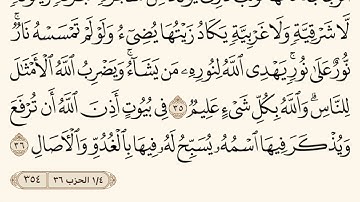 لَّا شَرْقِيَّةٍ وَلَا غَرْبِيَّةٍ يَكَادُ زَيْتُهَا يُضِىٓءُ وَلَوْ لَمْ تَمْسَسْهُ نَارٌ ۚ
نُّورٌ عَلَىٰ نُورٍ ۗ يَهْدِى ٱللَّهُ لِنُورِهِۦ مَن يَشَآءُ ۚ وَيَضْرِبُ ٱللَّهُ ٱلْأَمْثَـٰلَ
لِلنَّاسِ ۗ وَٱللَّهُ بِكُلِّ شَىْءٍ عَلِيمٌ ٣٥ فِى بُيُوتٍ أَذِنَ ٱللَّهُ أَن تُرْفَعَ
وَيُذْكَرَ فِيهَا ٱسْمُهُۥ يُسَبِّحُ لَهُۥ فِيهَا بِٱلْغُدُوِّ وَٱلْـَٔاصَالِ ٣٦
١/٤ الحزب ٣٦
٣٥٤